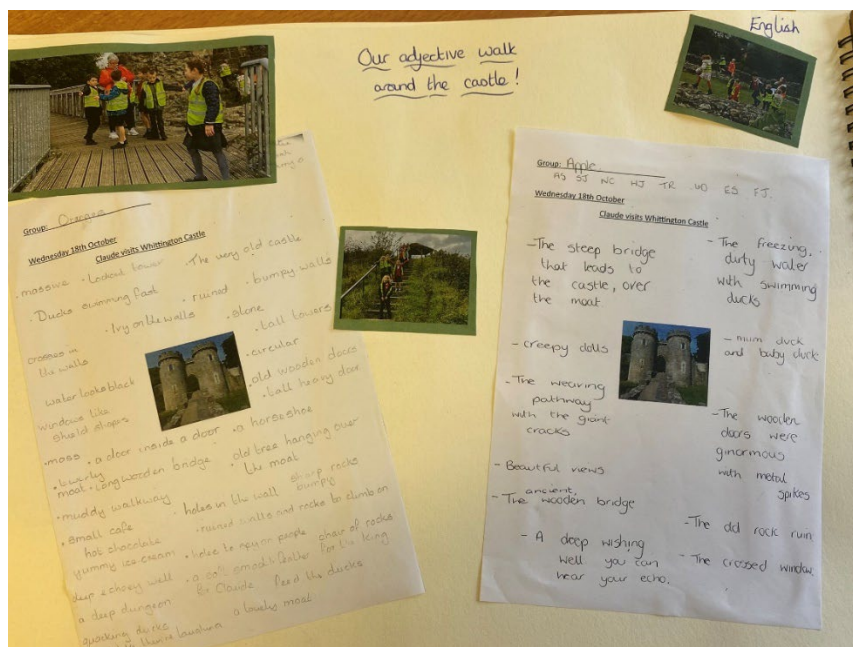 English
Our adjective walk
around the castle!
Group: Oranges
Wednesday 18th October
Claude visits Whittington Castle
• massive • Lookout tower • The very old castle
• Ducks swimming fast • ruined • bumpy walls
• Ivy on the walls • stone • tall towers
crosses in
the walls
• circular
• old wooden doors
water looks black
• tall heavy door
windows like
shield shapes
• moss • a door inside a door • a horseshoe
moat • Long wooden bridge
old tree hanging over
the moat
• muddy walkway • holes in the wall
sharp rocks
bumpy
• small cafe
• ruined walls and rocks to climb on
hot chocolate
yummy ice-cream
chair of rocks
for the king
deep echoey well
a deep dungeon
Feed the ducks
quacking ducks
a lovely moat
Group: Apple
AS SJ NC HJ TR ES FJ.
Wednesday 18th October
Claude visits Whittington Castle
- The steep bridge
that leads to
the castle, over
the moat
- creepy dolls
- The weaving
pathway
with the giant
cracks
- Beautiful views
- The ancient, wooden bridge
- A deep wishing
well you can
hear your echo.
- The freezing,
dirty water
with swimming
ducks
- mum duck
and baby duck
- The wooden
doors were
ginormous
with metal
spikes
- The old rock ruin
- The crossed window